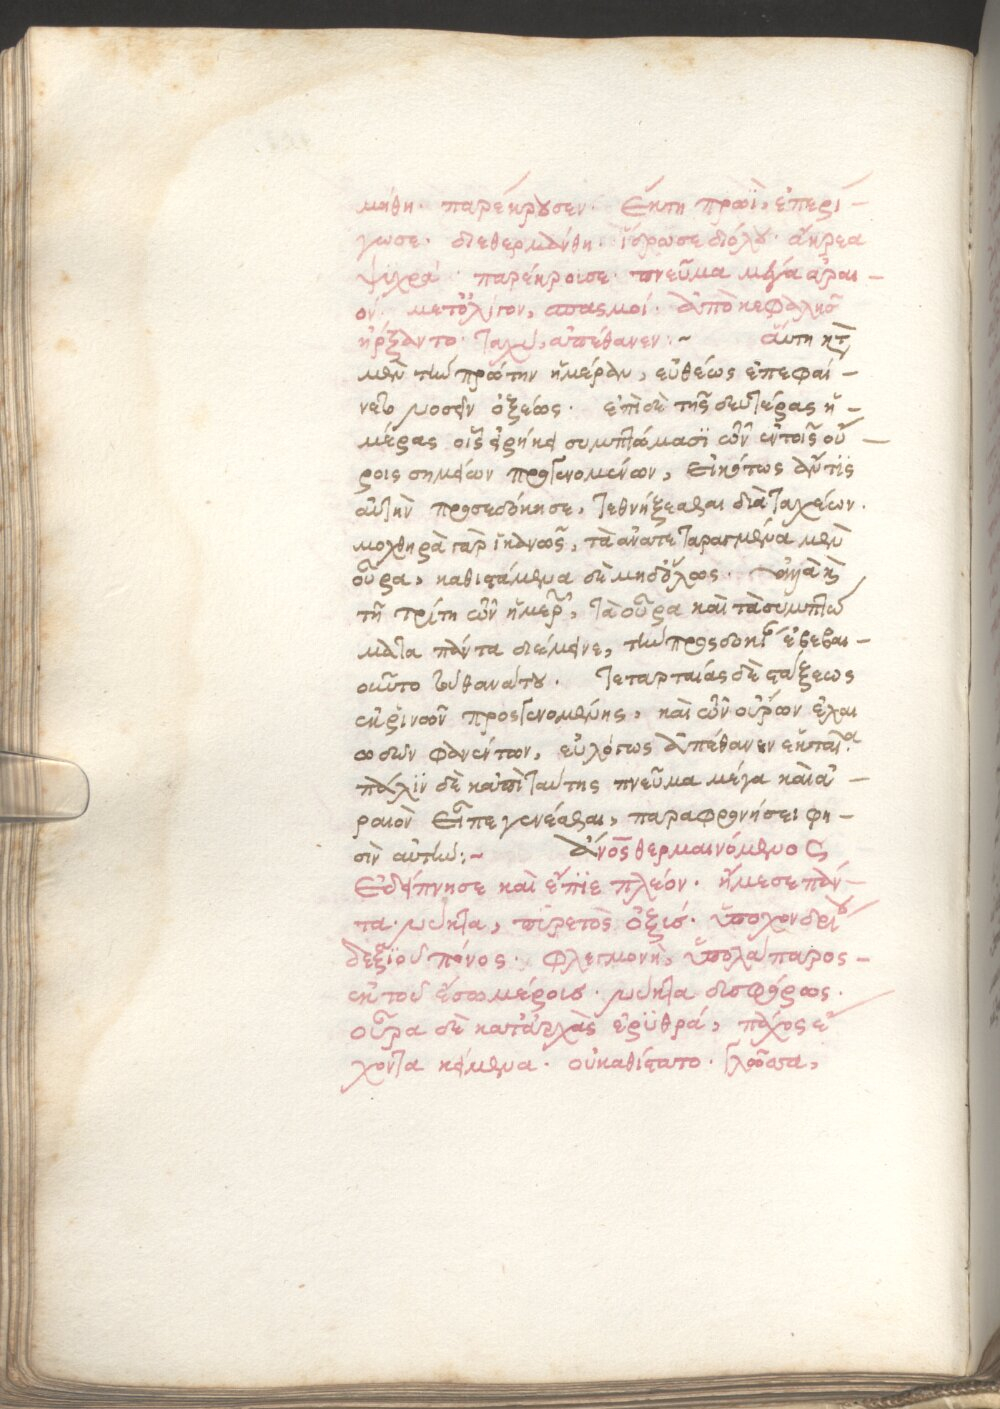 μήθη· παρέκρουσεν· ἕκτη πρωῒ, ἐπερί-
γωσε· διεθερμάνθη· ἵδρωσε διόλου· ἄκρεα
ψϋχρά· παρέκροισε· πνεῦμα μέγα ἀραι-
όν· μετ' ὀλίγον, σπασμοί· ἀπὸ κεφαλῆς
ἤρξαντο· ταχὺ ἀπέθανεν:~ αὕτη κατὰ
μὲν τὴν πρώτην ἡμέραν, εὐθέως ἐπεφαί-
νετο νοσεῖν ὀξέως· ἐπὶ δὲ τῆς δευτέρας ἡ-
μέρας οἷς εἴρηκε συμπτώμασϊ τῶν ἐν τοῖς οὔ-
ροις σημείων προσγενομένων, εἰκότως ἄν τϊς
αὐτὴν προσεδόκησε, τεθνήξεσθαι διὰ ταχέων·
μοχθηρὰ γὰρ ἱκανῶς, τὰ ἀνατεταραγμένα μὲν
οὖρα, καθιστάμενα δὲ μηδόλως· ἀλλὰ καὶ
τῇ τρίτῃ τῶν ἡμερῶν, τὰ οὖρα καὶ τὰ συμπτώ
ματα πάντα διέμεινε, τὴν προσδοκίαν ἐβεβαι-
οῦτο τοῦ θανάτου· τεταρταίας δὲ στάξεως
ἐκ ῥινῶν προσγενομένης, καὶ τῶν οὔρων ἐλαι
ωδῶν φανέντων, εὐλόγως ἀπέθανεν ἑκταία·
πάλϊν δὲ κἀπὶ ταύτης πνεῦμα μέγα καὶ ἀ-
ραιὸν εἶπε γενέσθαι, παραφρονήσει φη-
σὶν αὐτὴν:~ ἄνος θερμαινόμενος
ἐδείπνησε καὶ ἔπϊε πλέον· ἤμεσε πάν-
τα· νύκτα, πϋρετὸς ὀξύς· ὑποχονδρίου
δεξϊοῦ πόνος· φλεγμονὴ, ὑπολάπαρος-
ἐκ τοῦ ἔσω μέρους· νύκτα δυσφόρως·
οὖρα δὲ κατ' ἀρχὰς ἐρϋθρά, πάχος ἔ
χοντα κείμενα· οὐ καθίστατο· γλῶσσα,